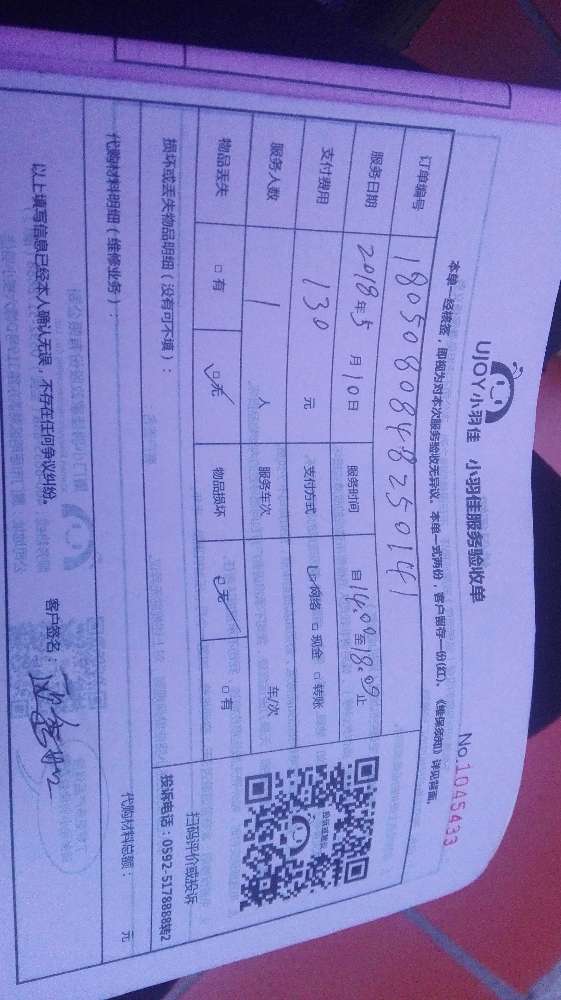 UJOY小羽佳 小羽佳服务验收单
No.1045433
本单一经核签，即视为对本次服务验收无异议。本单一式两份，客户留存一份(红)。《维保须知》详见背面。
订单编号 180508084825014 1
服务日期 2018年5月10日 服务时间 自14:00至18:00止
支付费用 130 元 支付方式 ☑网络 □现金 □转账
服务人数 1 人 服务车次 车/次
物品丢失 □有 ☑无 物品损坏 ☑无 □有
扫码评价或投诉
损坏或丢失物品明细（没有可不填）：
投诉电话：0592-5178888转2
代购材料明细（维修业务）：
代购材料总额： 元
以上填写信息已经本人确认无误，不存在任何争议纠纷。
客户签名：